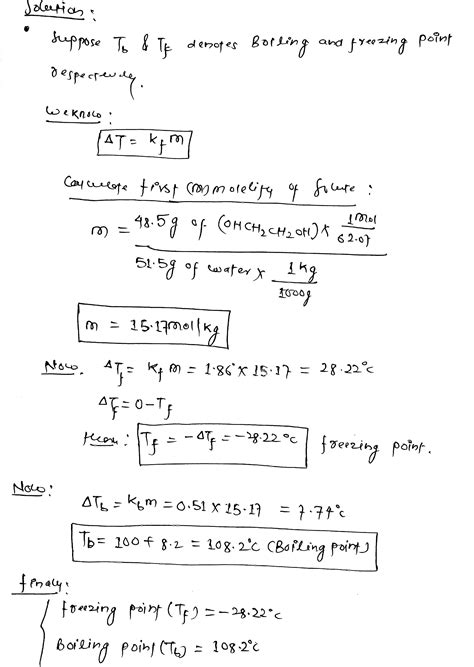 Solution:
• Suppose Tb & Tf denotes Boiling and freezing point
respectively.
We know:
ΔT = kf m
Calculate first (m) molality of solute:
m = 48.5g of (OHCH2CH2OH) × 1mol / 62.07
51.5g of water × 1kg / 1000g
m = 15.17mol/kg
Now, ΔTf = kf m = 1.86° × 15.17 = 28.22°c
ΔTf = 0 - Tf
Tf = -ΔTf = -28.22°c freezing point.
Now:
ΔTb = kb m = 0.51 × 15.17 = 7.74°c
Tb = 100 + 8.2 = 108.2°c (Boiling point)
finaly:
freezing point (Tf) = -28.22°c
Boiling point (Tb) = 108.2°c